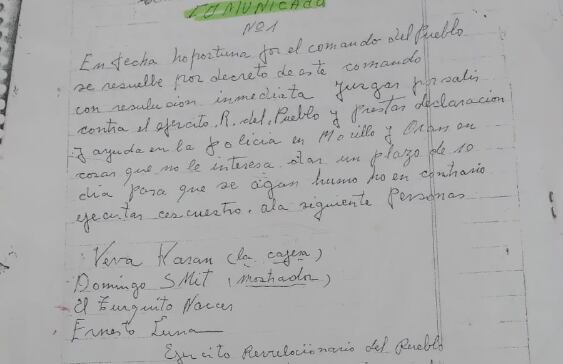 COMUNICADO
Nº1
En fecha hoportuna por el comando del Pueblo
se resuelbe por decreto de este comando
con resulucion inmediata Jurgar por salir
contra el ejercito. R. del. Pueblo y prestar declaracion
y ayuda en la policia en Morillo y Oran en
cosas que no le interesa. otar un plazo de 10
dia para que se agan humo no en contrario
ejecutar cescuestro. ala siguiente Personas
Veva Kasan (la cajera)
Domingo SMit (mostrador)
El Turquito Naccer
Ernesto Luna
Ejercito Revulocionario del Pueblo